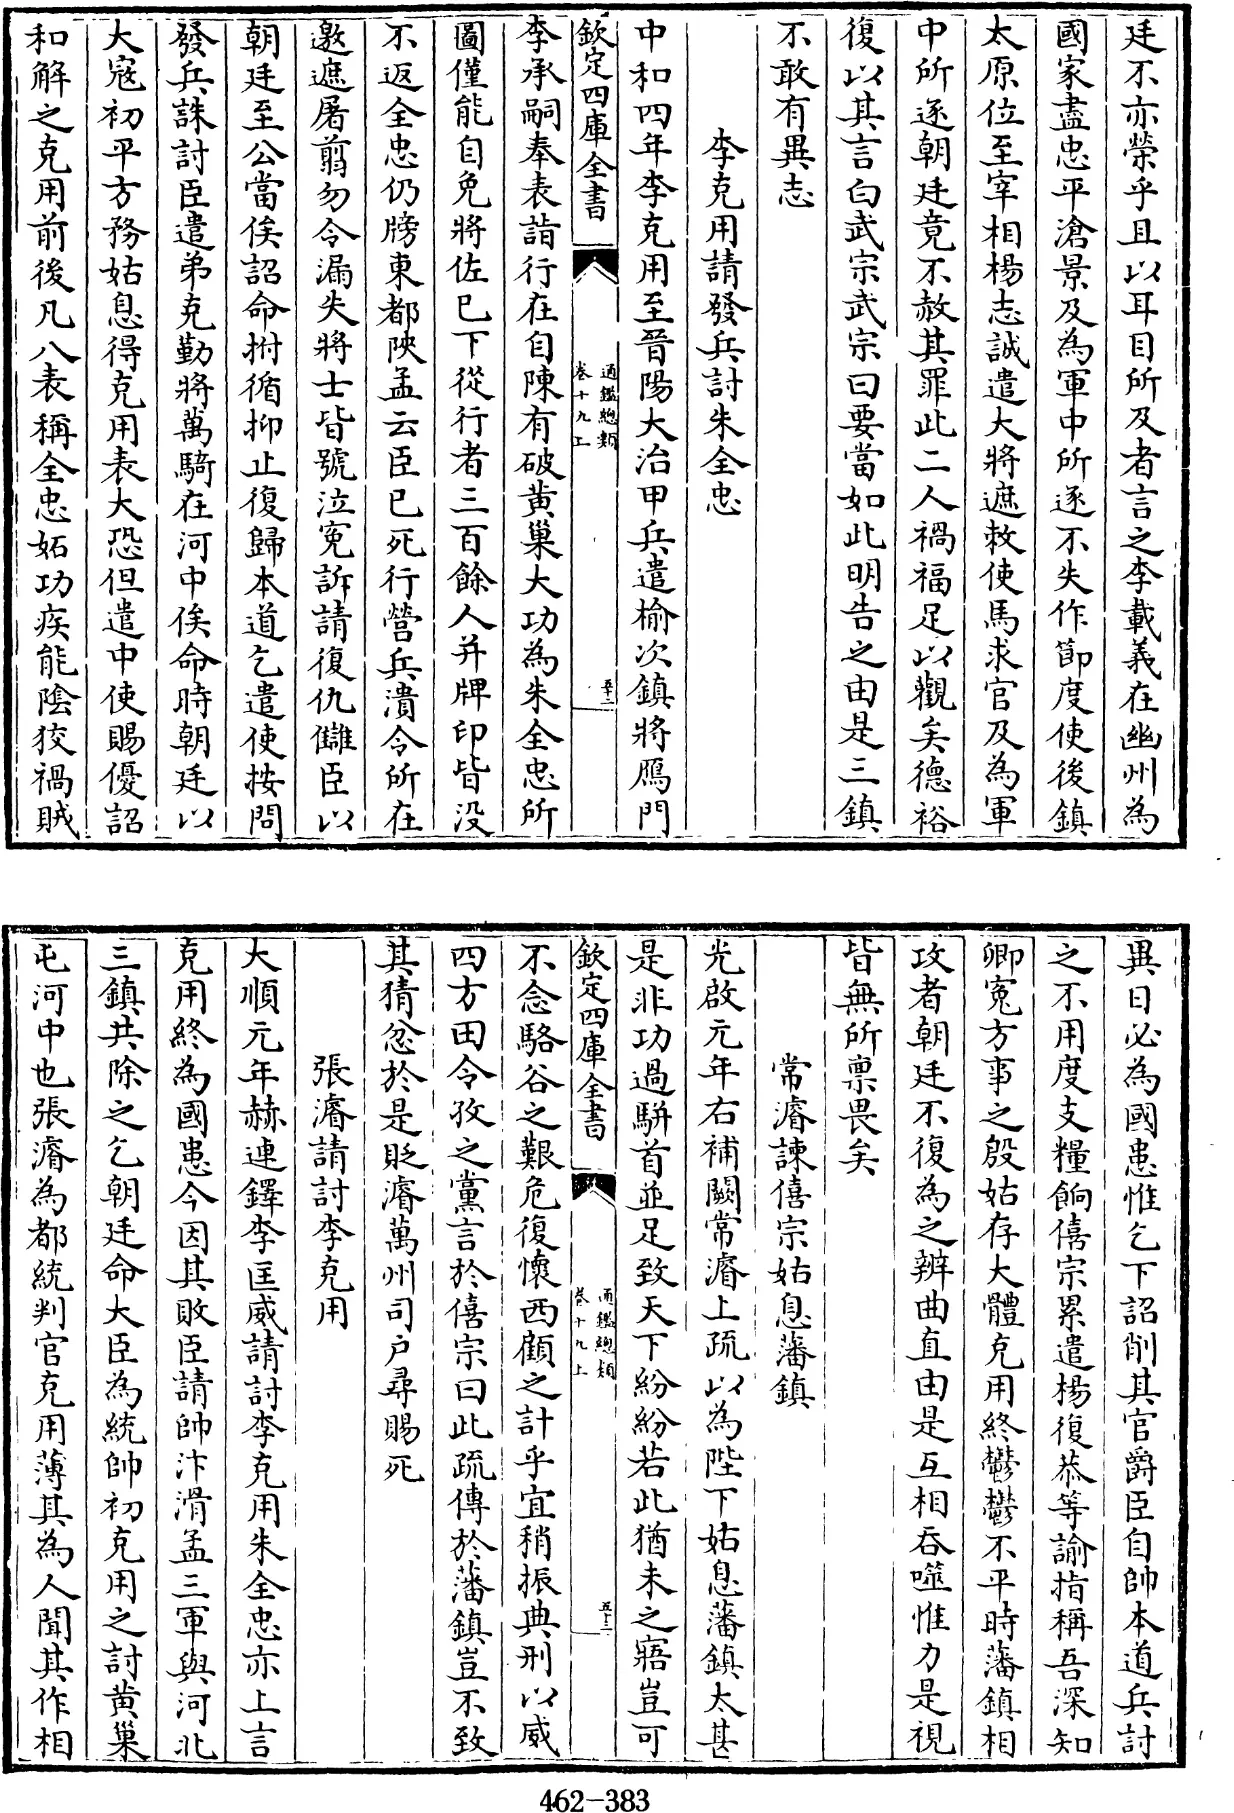 廷不亦榮乎且以耳目所及者言之李載義在幽州為
國家盡忠平滄景及為軍中所逐不失作節度使後鎮
太原位至宰相楊志誠遣大將遮敕使馬求官及為軍
中所逐朝廷竟不赦其罪此二人禍福足以觀矣德裕
復以其言白武宗武宗曰要當如此明告之由是三鎮
不敢有異志
李克用請發兵討朱全忠
中和四年李克用至晉陽大治甲兵遣榆次鎮將鴈門
欽定四庫全書
通鑑總類
卷十九上
五十二
李承嗣奉表詣行在自陳有破黃巢大功為朱全忠所
圖僅能自免將佐已下從行者三百餘人并牌印皆没
不返全忠仍牓東都陜孟云臣已死行營兵潰令所在
邀遮屠翦勿令漏失將士皆號泣寃訴請復仇讎臣以
朝廷至公當俟詔命拊循抑止復歸本道乞遣使按問
發兵誅討臣遣弟克勤將萬騎在河中俟命時朝廷以
大寇初平方務姑息得克用表大恐但遣中使賜優詔
和解之克用前後凡八表稱全忠妬功疾能陰狡禍賊
異日必為國患惟乞下詔削其官爵臣自帥本道兵討
之不用度支糧餉僖宗累遣楊復恭等諭指稱吾深知
卿寃方事之殷姑存大體克用終鬱鬱不平時藩鎮相
攻者朝廷不復為之辨曲直由是互相吞噬惟力是視
皆無所禀畏矣
常濬諫僖宗姑息藩鎮
光啟元年右補闕常濬上疏以為陛下姑息藩鎮太甚
是非功過駢首並足致天下紛紛若此猶未之寤豈可
欽定四庫全書
通鑑總類
卷十九上
五十三
不念駱谷之艱危復懷西顧之計乎宜稍振典刑以威
四方田令孜之黨言於僖宗曰此疏傳於藩鎮豈不致
其猜忿於是貶濬萬州司户尋賜死
張濬請討李克用
大順元年赫連鐸李匡威請討李克用朱全忠亦上言
克用終為國患今因其敗臣請帥汴滑孟三軍與河北
三鎮共除之乞朝廷命大臣為統帥初克用之討黃巢
屯河中也張濬為都統判官克用薄其為人聞其作相
462-383